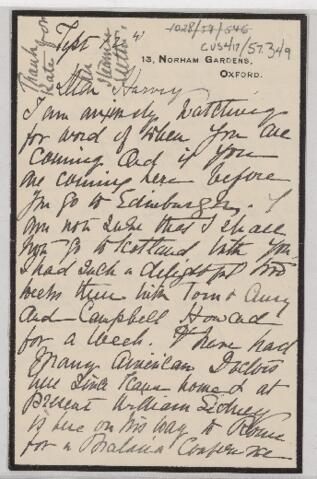 Thank you
Kate for
her
letter.
1028/59/546
CUS417/57.349
Sept
13, NORHAM GARDENS,
OXFORD.
Dear Harvey
I am anxiously watching
for word of when you are
coming and if you
are coming here before
you go to Edinburgh. I
am not sure that I shall
go to Scotland with you
I had such a delightful two
weeks there with Tom & Amy
and Campbell Howard
for a week. I have had
Many American Doctors
here since I came home & at
present William Sidney
is here on his way to Rome
for a Malaria Conference